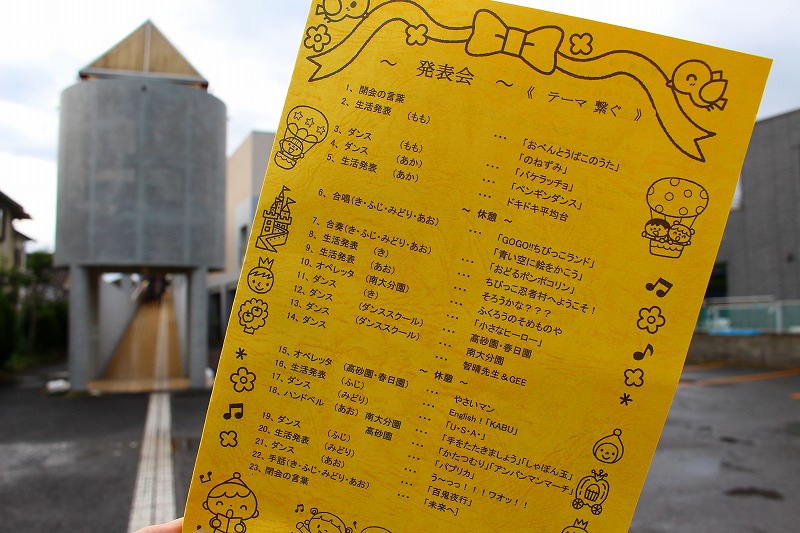 ～ 発表会 ～ 《 テーマ 繋ぐ 》
1、開会の言葉
2、生活発表 (もも) … 「おべんとうばこのうた」
「のねずみ」
3、ダンス (もも) … 「バケラッチョ」
4、ダンス (あか) … 「ペンギンダンス」
5、生活発表 (あか) … ドキドキ平均台
～ 休憩 ～
6、合唱(き・ふじ・みどり・あお) … 「GOGO!!ちびっこランド」
「青い空に絵をかこう」
7、合奏(き・ふじ・みどり・あお) … 「おどるポンポコリン」
8、生活発表 (き) … ちびっこ忍者村へようこそ！
9、生活発表 (あお) … そろうかな？？？
10、オペレッタ (南大分園) … ふくろうのそめものや
11、ダンス (き) … 「小さなヒーロー」
12、ダンス (ダンススクール) … 高砂園・春日園
13、ダンス (ダンススクール) … 南大分園
14、ダンス … 智晴先生＆GEE
～ 休憩 ～
15、オペレッタ (高砂園・春日園) … やさいマン
16、生活発表 (ふじ) … English！「KABU」
17、ダンス (みどり) … 「U・S・A・」
18、ハンドベル (あお) 南大分園 … 「手をたたきましょう」「しゃぼん玉」
高砂園 … 「かたつむり」「アンパンマンマーチ」
19、ダンス (ふじ) … 「パプリカ」
20、生活発表 (みどり) … う～っっ！！！ワオッ！！
21、ダンス (あお) … 「百鬼夜行」
22、手話(き・ふじ・みどり・あお) … 「未来へ」
23、閉会の言葉